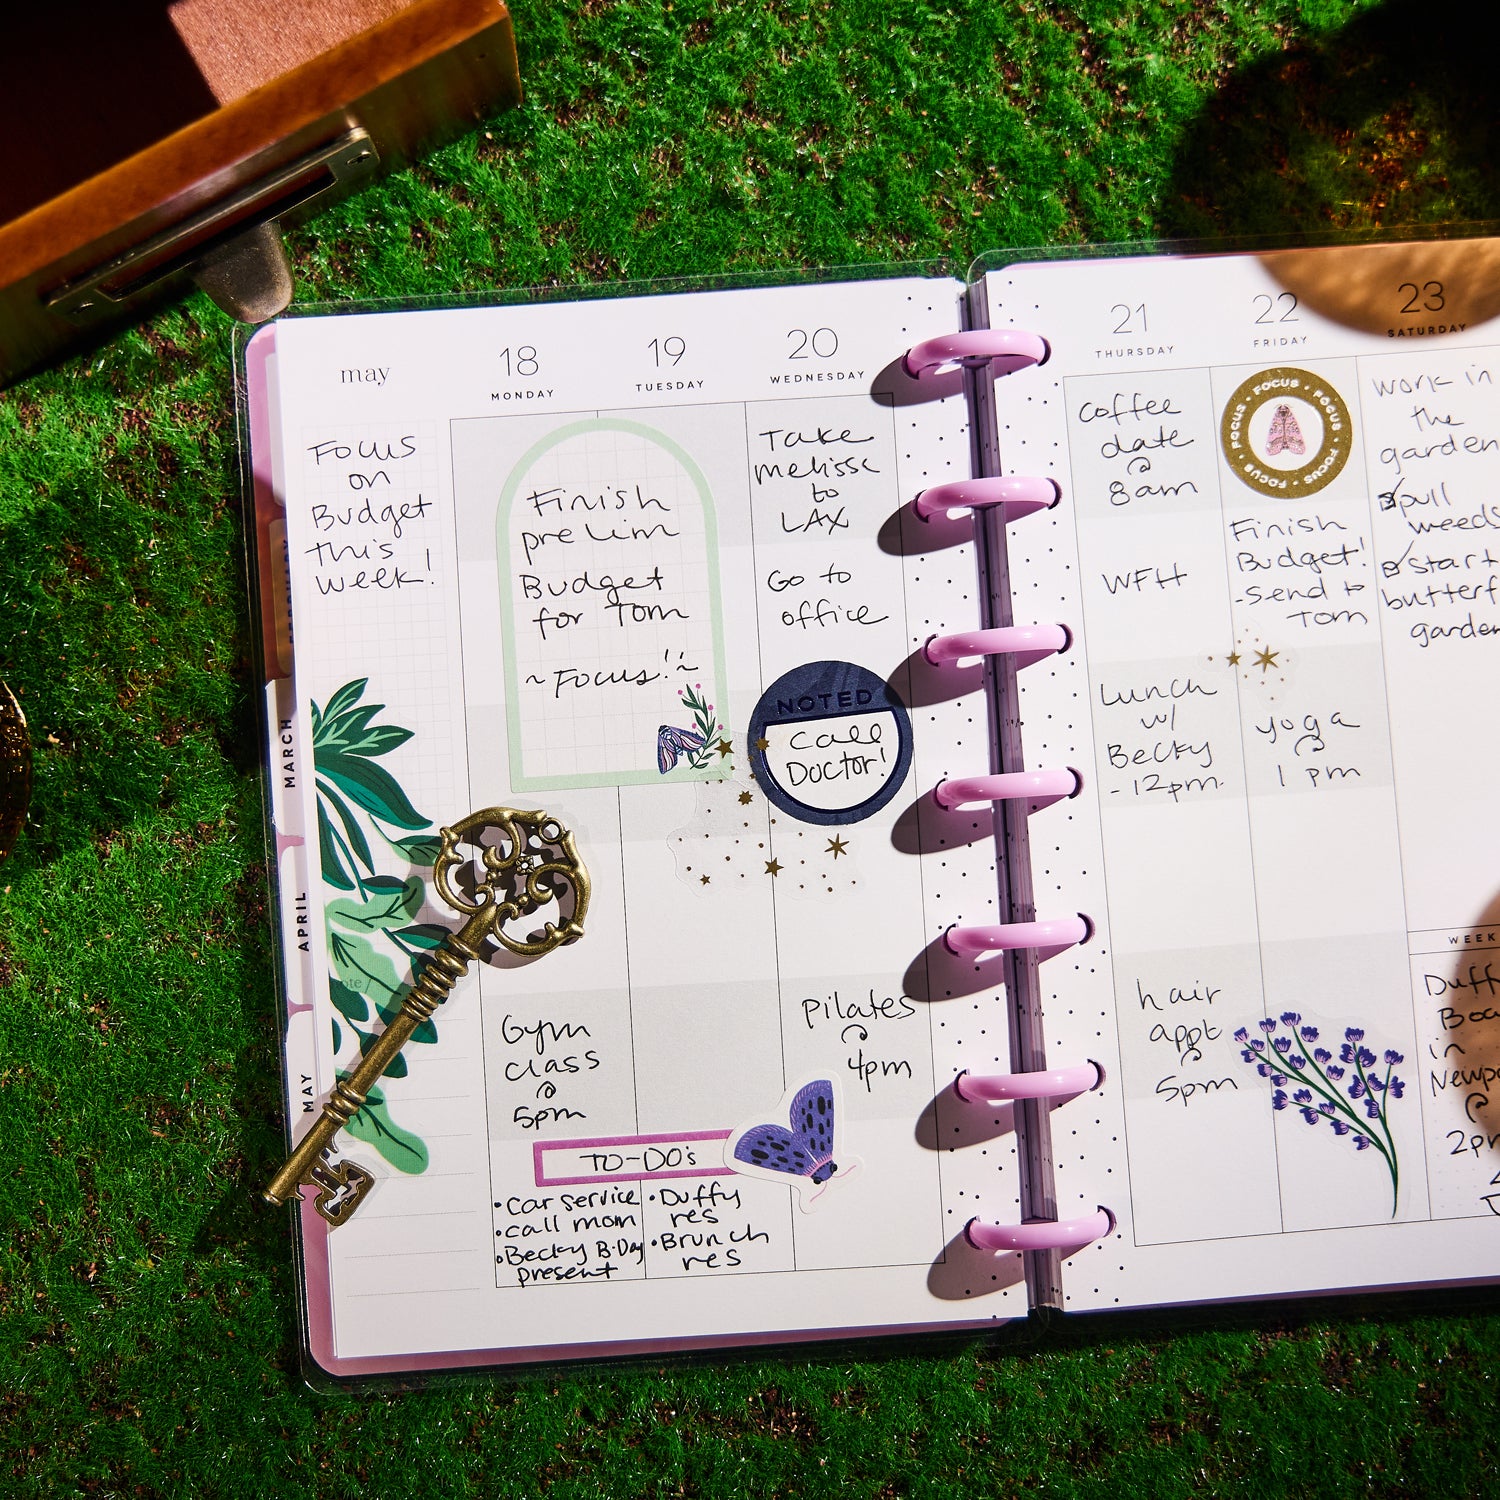 may
FOCUS
on
Budget
this
week!
18
MONDAY
19
TUESDAY
20
WEDNESDAY
Finish
prelim
Budget
for Tom
~Focus!~
Take
melissa
to
LAX
Go to
office
NOTED
Call
Doctor!
Gym
class
@
5pm
Pilates
@
4pm
TO-DO's
• Car service
• call mom
• Becky B-Day
present
• Duffy
res
• Brunch
res
MARCH
APRIL
MAY
21
THURSDAY
22
FRIDAY
23
SATURDAY
coffee
date
@
8am
WFH
Lunch
w/
Becky
- 12pm.
hair
appt
@
5pm
FOCUS • FOCUS • FOCUS • FOCUS • FOCUS
Finish
Budget!
- Send to
Tom
yoga
@
1 pm
work in
the
garden
pull
weeds
start
WEEK
in
@